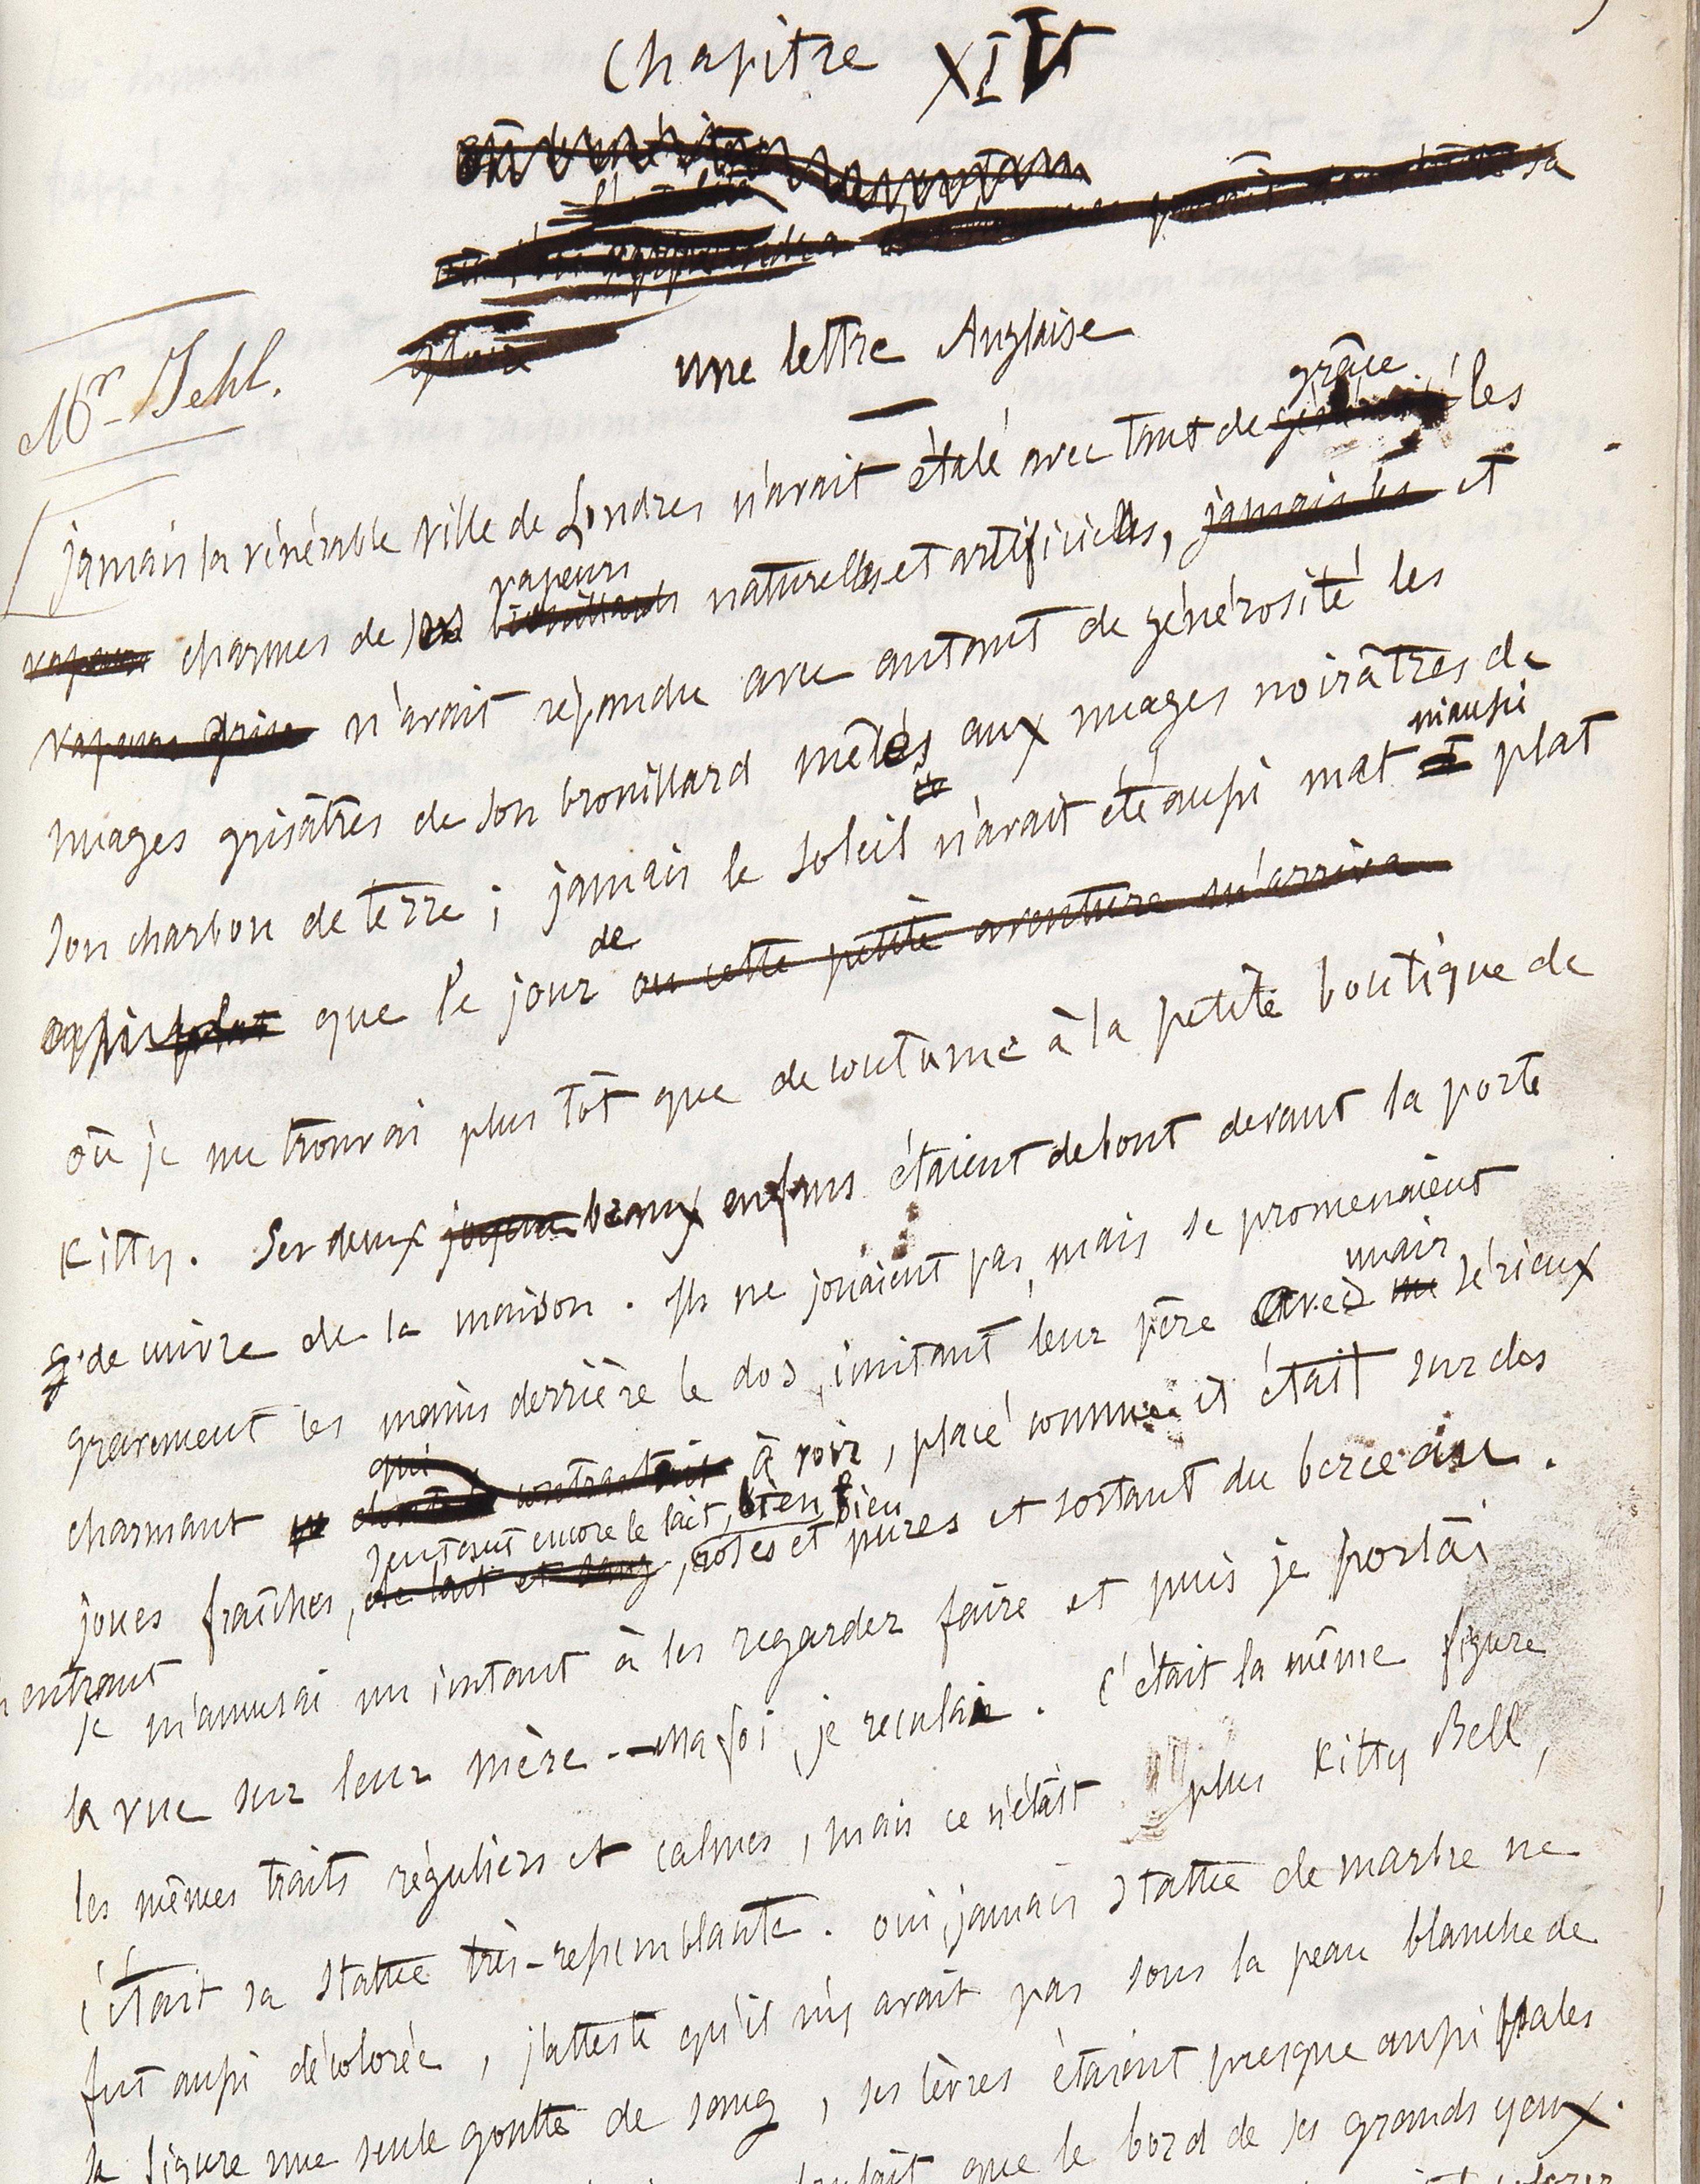 Chapitre XIV
gloire
une lettre Anglaise
Mr. Jehl.
grâce
jamais la vénérable ville de Londres n'avait étalé avec tant de les
vapeurs
vapeurs charmes de ses brouillards naturelles et artificielles, jamais les et
vapeurs grises n'avait répandu avec autant de générosité les
nuages grisâtres de son brouillard mêlés aux nuages noirâtres de
ni aussi
son charbon de terre ; jamais le soleil n'avait été aussi mat et plat
de
aussi plat que le jour ou cette petite aventure m'arriva
où je me trouvai plus tôt que de coutume à la petite boutique de
Kitty. Ses deux beaux enfans étaient debout devant la porte
de cuivre de la maison. Ils ne jouaient pas, mais se promenaient
un air
gravement les mains derrière le dos, imitant leur père avec un sérieux
qui
charmant contrastait à voir, placé comme il était sur des
sentant encore le lait, bien bien
joues fraîches, de lait et sang, roses et pures et sortant du berceau.
entrant
je m'amusai un instant à les regarder faire et puis je portai
la vue sur leur mère -- Ma foi, je reculai. C'était la même figure
les mêmes traits réguliers et calmes, mais ce n'était plus Kitty Bell,
c'était sa statue très-ressemblante. oui, jamais statue de marbre ne
fut aussi décolorée, j'atteste qu'il n'y avait pas sous la peau blanche de
sa figure une seule goutte de sang, ses lèvres étaient presque aussi pales
que le bord de ses grands yeux.